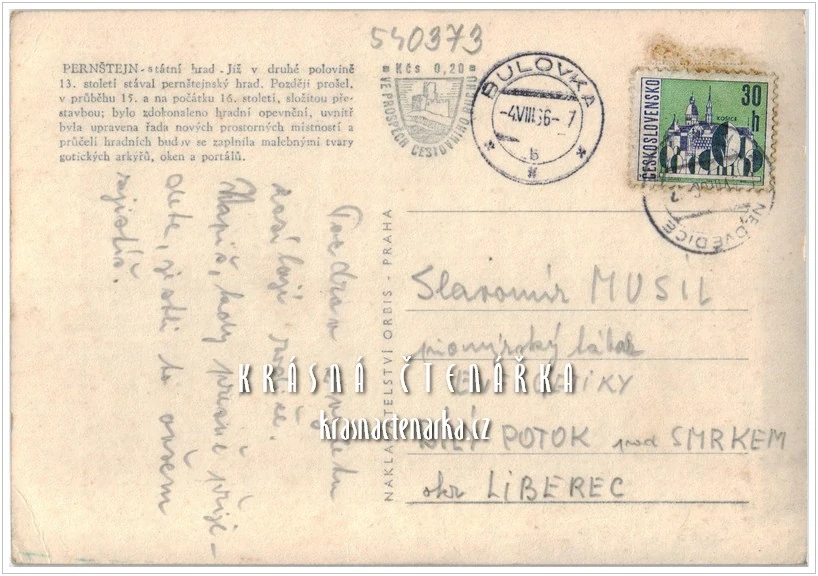 540373
PERNŠTEJN - státní hrad - Již v druhé polovině
13. století stával pernštejnský hrad. Později prošel,
v průběhu 15. a na počátku 16. století, složitou pře-
stavbou; bylo zdokonaleno hradní opevnění, uvnitř
byla upravena řada nových prostorných místností a
průčelí hradních budov se zaplnila malebnými tvary
gotických arkýřů, oken a portálů.
Kčs 0,20
VE PROSPĚCH CESTOVNÍHO RUCHU
BULOVKA
-4.VIII.66-7
b
ČESKOSLOVENSKO
30 h
KOŠICE
NEDVĚDICE
Pozdrav z výletu
zasílají rodiče.
Napiš, kdy přesně přije-
dete, jestli to ovšem
zjistíš.
NAKLADATELSTVÍ ORBIS - PRAHA
Slavomír MUSIL
pionýrský tábor
KRÁSNÁ ČTENÁŘKA
krasnactenarka.cz
POTOK pod SMRKEM
okr LIBEREC